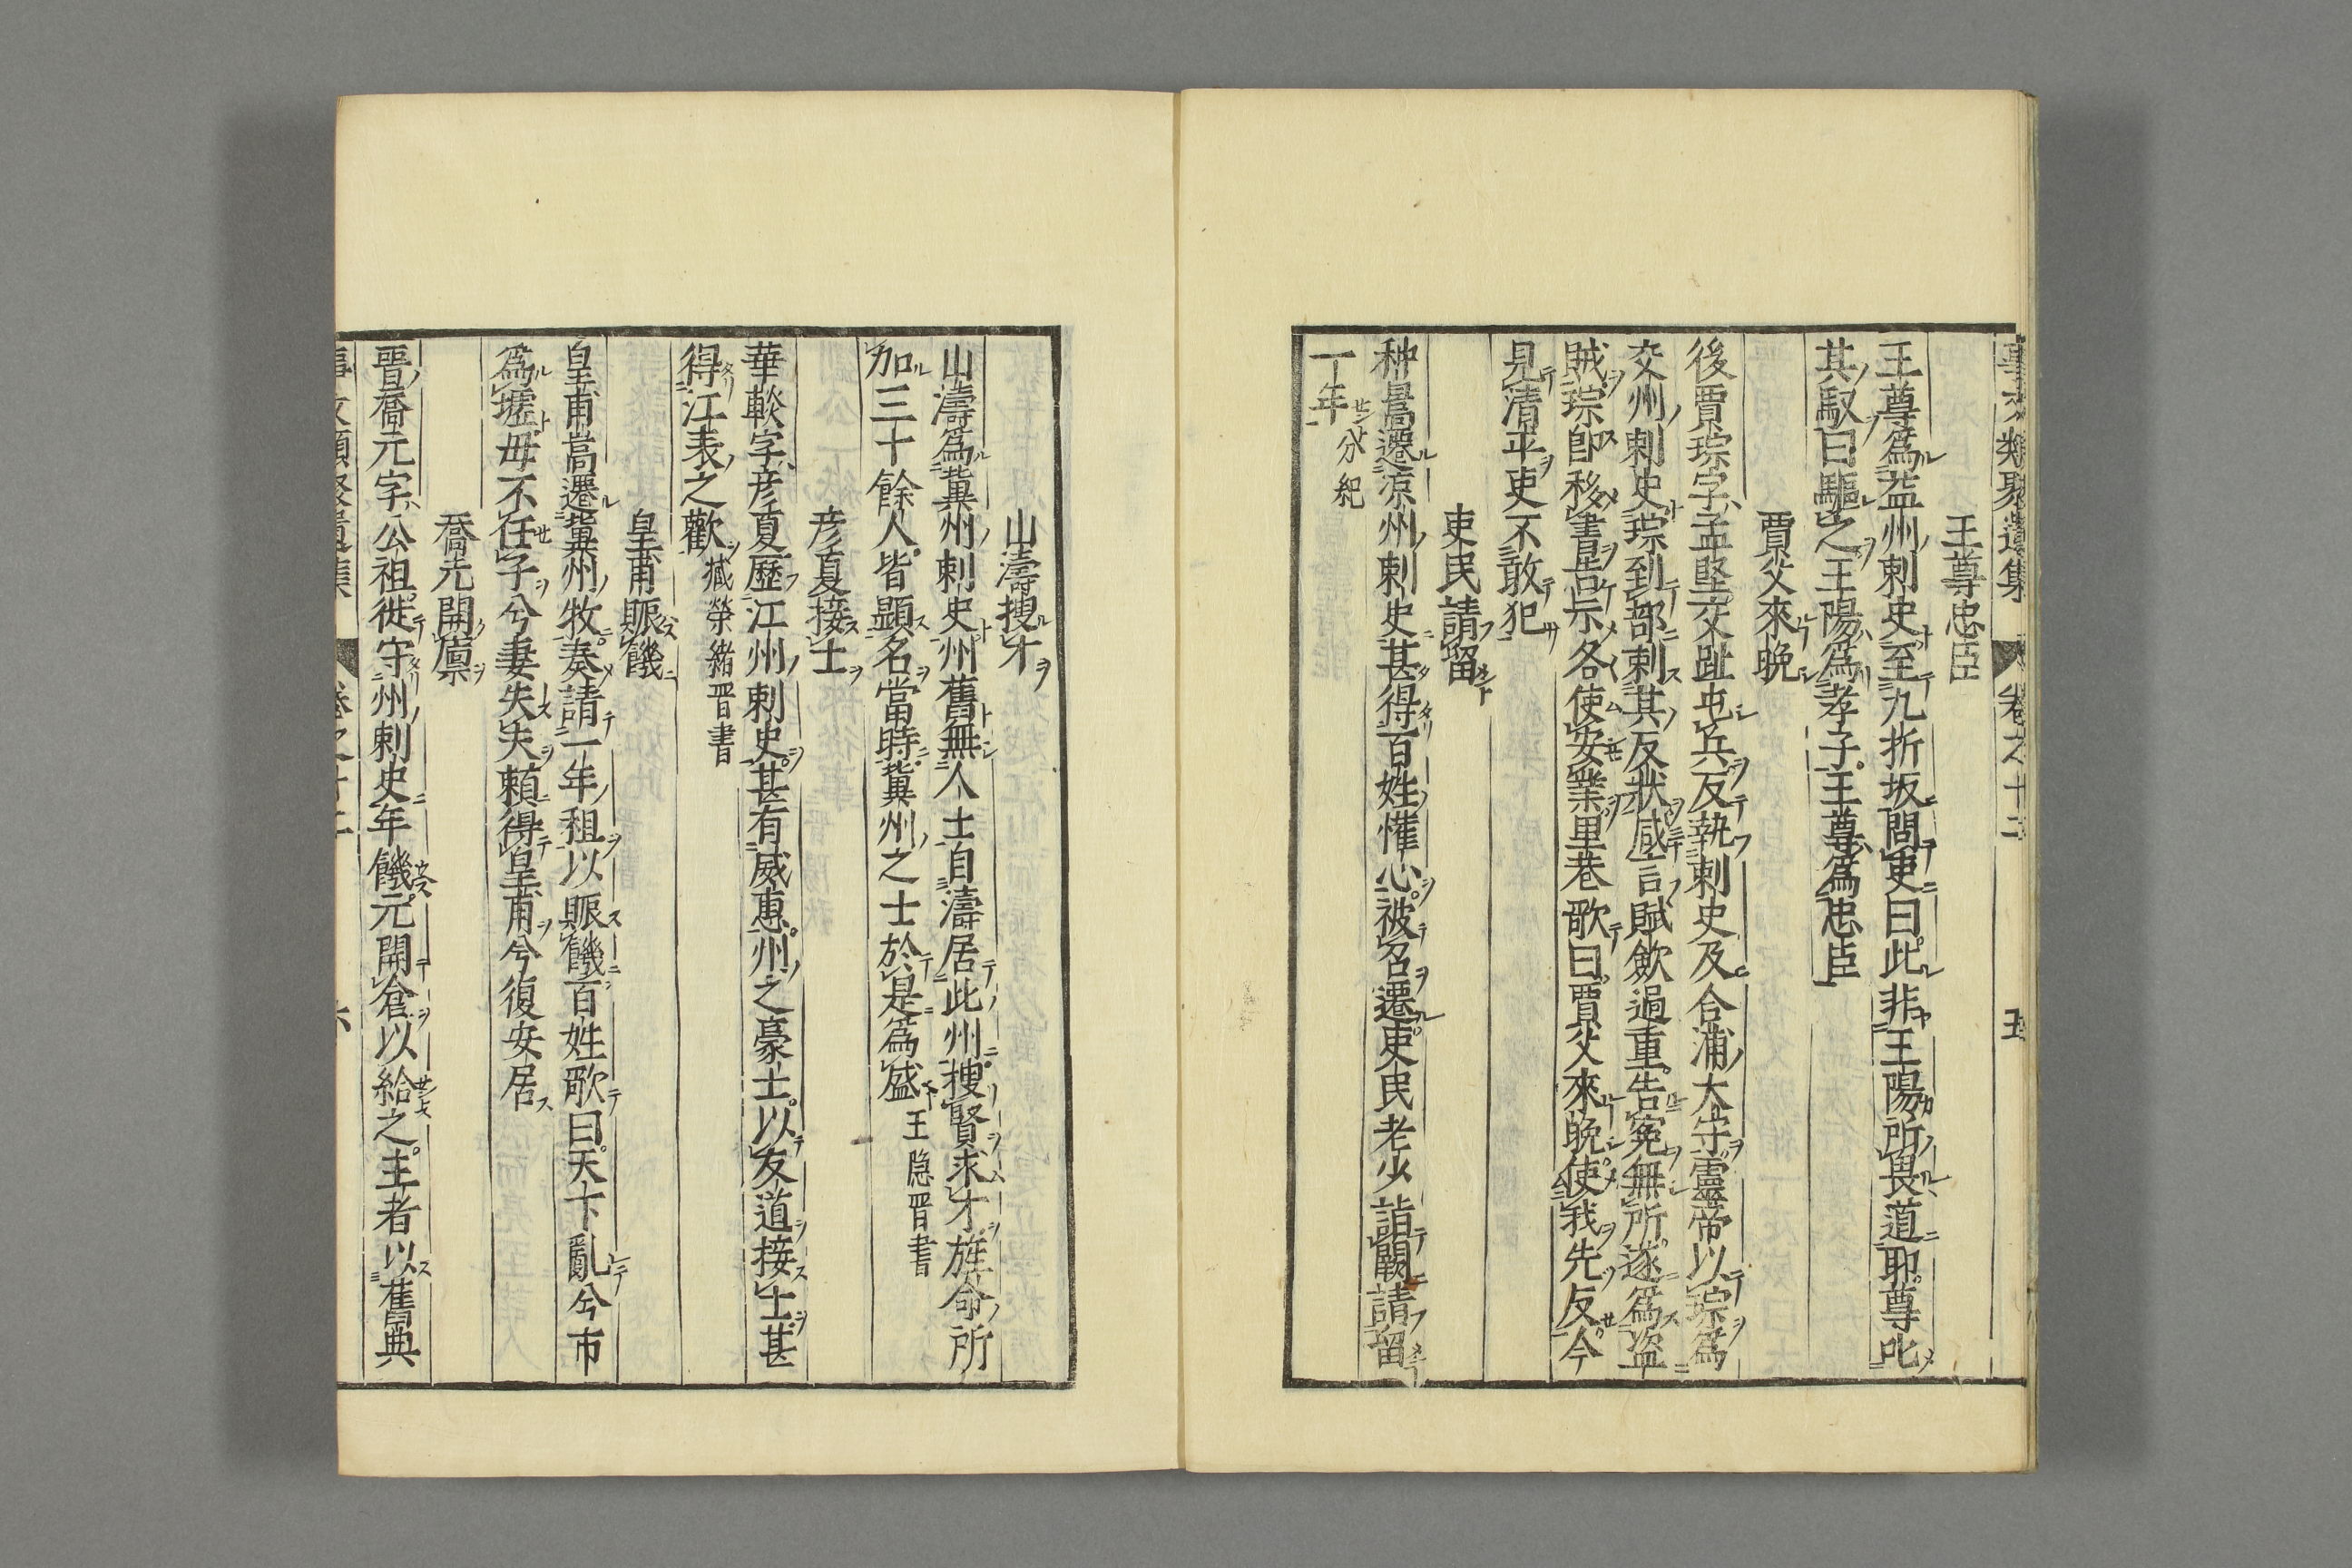 事文類聚遺集 卷之十二 五
王尊忠臣
王尊爲益州刺史至九折坂問吏曰此非王陽所畏道耶尊叱
其馭曰驅之王陽爲孝子王尊爲忠臣
賈父來晚
後賈琮字孟堅交趾屯兵反執刺史及合浦大守靈帝以琮爲
交州刺史琮到部刺其反狀咸言賦歛過重告寃無所遂爲盗
賊琮卽移書告示各使安業里巷歌曰賈父來晚使我先反今
見清平吏不敢犯
吏民請留
种暠遷涼州刺史甚得百姓懽心被召遷吏民老少詣闕請留
一年 分紀
山濤搜才
山濤爲冀州刺史州舊無人士自濤居此州搜賢求才旌命所
加三十餘人皆顯名當時冀州之士於是爲盛 王隠晋書
彦夏接士
華軼字彦夏歷江州刺史甚有威惠州之豪士以友道接士甚
得江表之歡 臧榮緒晋書
皇甫賑饑
皇甫嵩遷冀州牧奏請一年租以賑饑百姓歌曰天下亂兮市
爲墟毋不任子兮妻失夫頼得皇甫兮復安居
喬元開廩
晋喬元字公祖徙守州刺史年饑元開倉以給之主者以舊典
事文類聚遺集 卷之十二 六